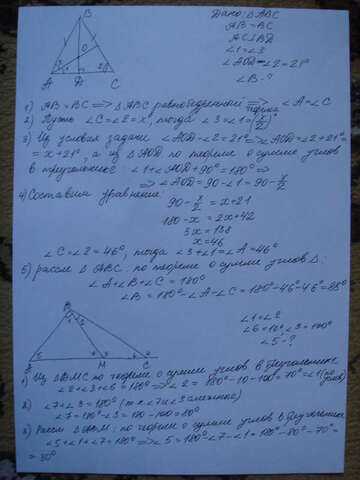 B
Дано: △ABC
AB = BC
AC⊥BD
∠1=∠3
∠AOD-∠2=21°
∠B-?
O
A D C
1) AB = BC => △ABC равнобедренный => ∠A=∠C
теорема
2) Пусть ∠C=∠2=x, тогда ∠3=∠1=(x/2)°
3) Из условия задачи ∠AOD-∠2=21° => ∠AOD=∠2+21°=
=x+21°, а из △AOD по теореме о сумме углов
в треугольнике ∠1+∠AOD+90°=180° =>
=> ∠AOD=90-∠1=90-x/2
4) Составим уравнение:
90-x/2=x+21
180-x=2x+42
3x=138
x=46
∠C=∠2=46°, тогда ∠3+∠1=∠A=46°
5) рассм △ABC по теореме о сумме углов △:
∠A+∠B+∠C=180°
∠B=180°-∠A-∠C=180°-46°-46°=88°
B
∠1=∠2
∠6=10°, ∠3=100°
∠5-?
M C
1) Из △BMC по теореме о сумме углов в треугольнике
∠2+∠3+∠6=180° => ∠2=180°-10-100=70°=∠1 (по
условию)
2) ∠7+∠3=180° (т.к ∠7 и ∠3 смежные)
∠7=180°-∠3=180-100=80°
3) Рассм △ABM: по теореме о сумме углов в треугольнике
∠5+∠1+∠7=180° => ∠5=180-∠7-∠1=180°-80°-70°=
=30°